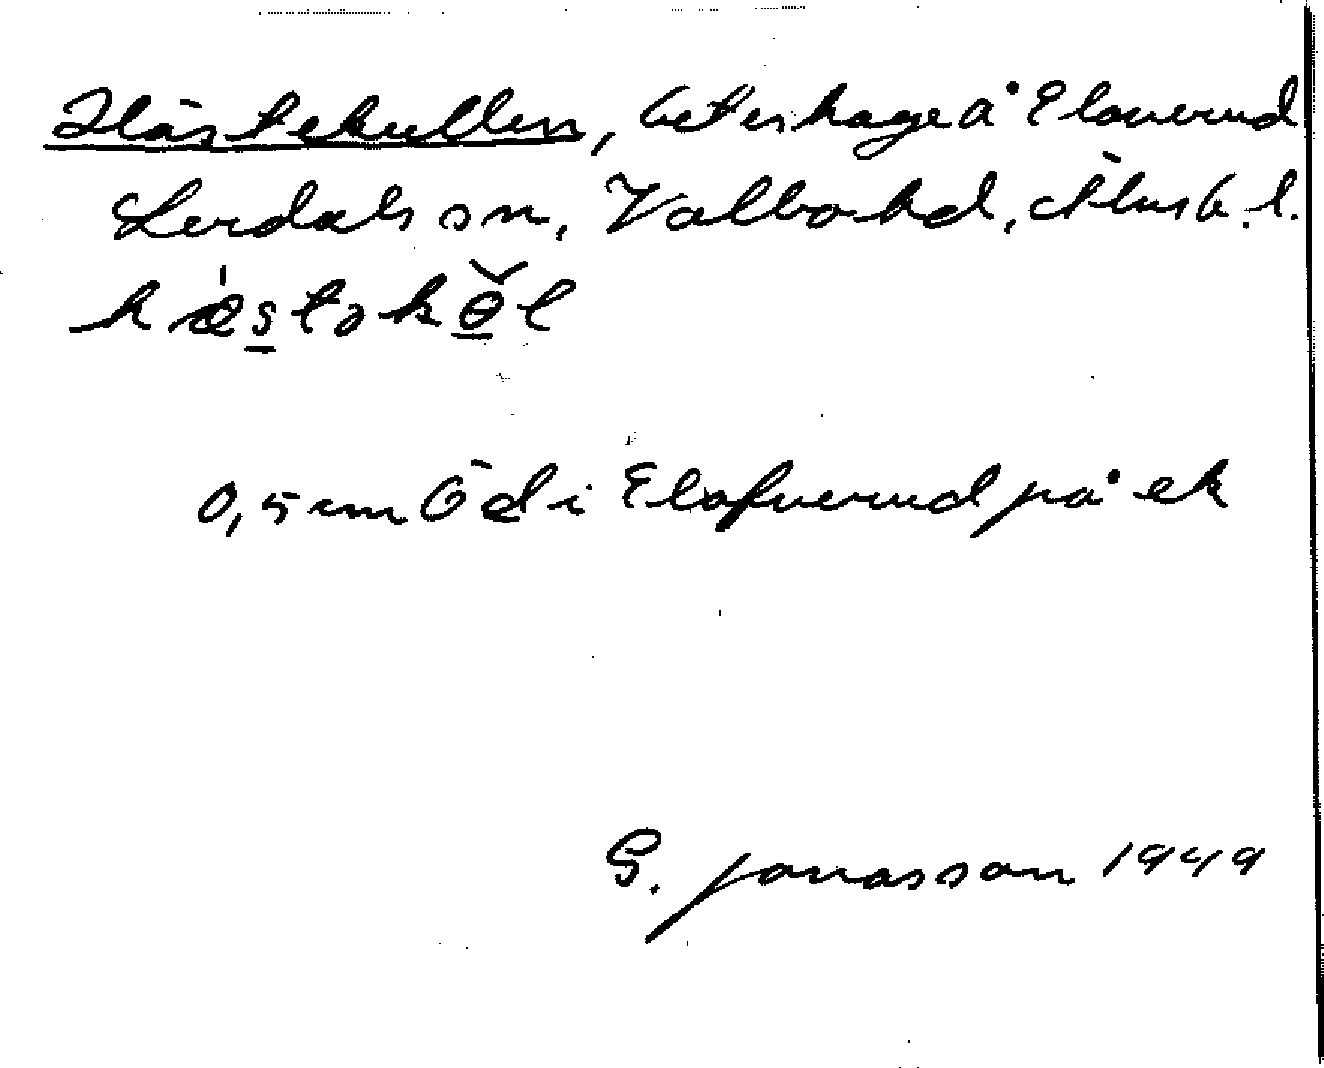 Hästekullen, beteshage å Elaverud
Lerdals sn, Valbo hd, Älvsb. l.
hæstəkɵ̆l
0,5 cm Ö d i Elafverud på ek
G. Jonasson 1949